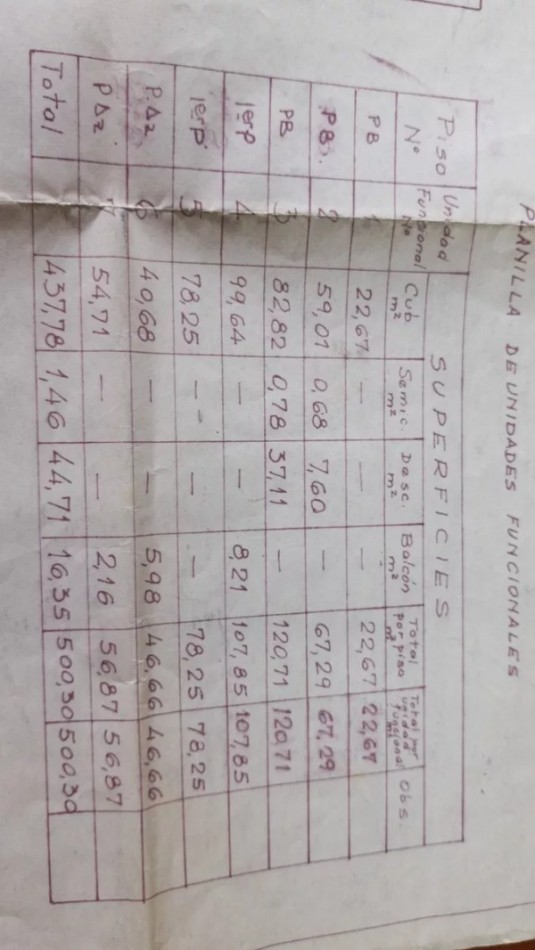 PLANILLA DE UNIDADES FUNCIONALES
Piso Nº | Unidad Funcional Nº | SUPERFICIES
Cub. m² | Semic. m² | Desc. m² | Balcón m² | Total por piso m² | Total por unidad funcional m² | Obs.
PB | 1 | 22,67 | — | — | — | 22,67 | 22,67
PB. | 2 | 59,01 | 0,68 | 7,60 | — | 67,29 | 67,29
PB | 3 | 82,82 | 0,78 | 37,11 | — | 120,71 | 120,71
1erp | 4 | 99,64 | — | — | 8,21 | 107,85 | 107,85
1erp | 5 | 78,25 | — | — | — | 78,25 | 78,25
P.Az | 6 | 40,68 | — | — | 5,98 | 46,66 | 46,66
PAz | 7 | 54,71 | — | — | 2,16 | 56,87 | 56,87
Total | 437,78 | 1,46 | 44,71 | 16,35 | 500,30 | 500,30